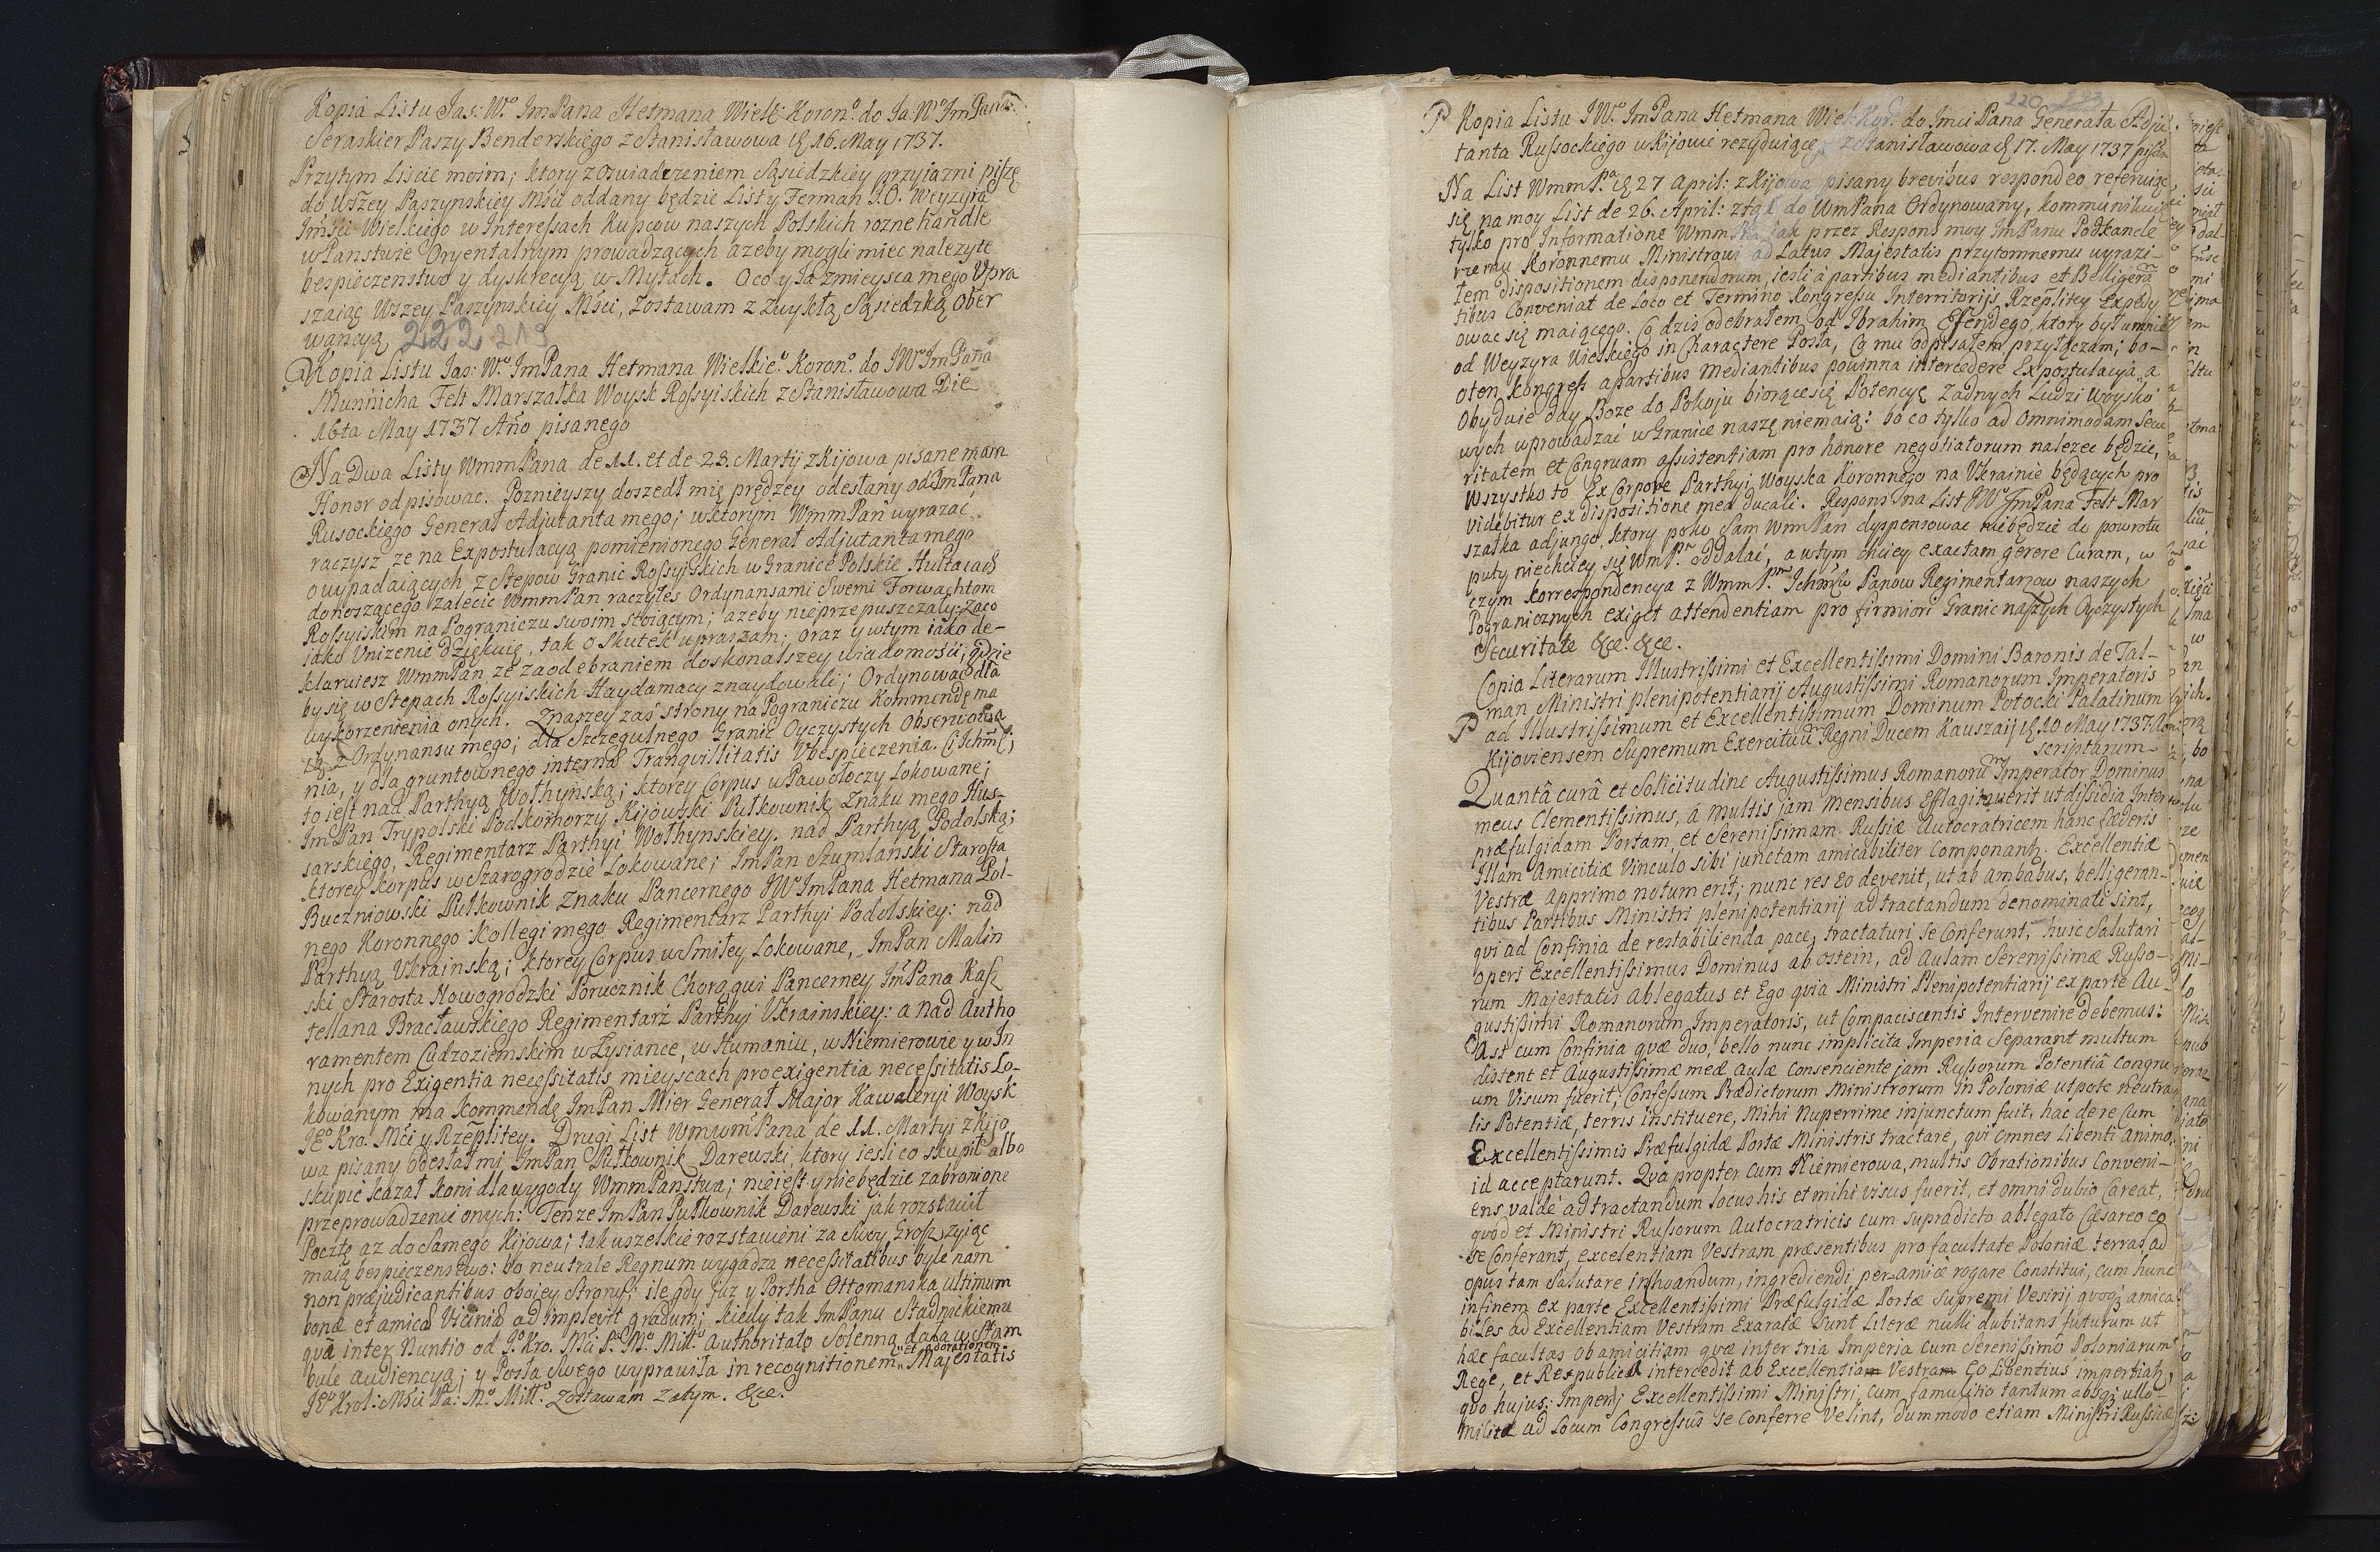 Kopia Listu Jas: Wo ImPana Hetmana Wielk: Korono. do Ja: Wo ImPana
Seraskier Paszy Benderskiego z Stanisławowa d. 16. May 1737.
Przytym Liscie moim; ktory z oswiadczeniem Sąsiedzkiey przyiazni piszę
do wszey Paszynskiey Mści oddany będzie List y Ferman J.O. Wezyra
Imści Wielkiego w Interessach Kupcow naszych Polskich rozne handle
w Panstwie Oryentalnym prowadzących azeby mogli miec nalezyte
bespieczenstwo y dyskrecyą w Mytach. Oco y Ja zmieysca mego Upra
szaiąc Wszey Paszynskiey Mści, zostawam z Zwykłą Sąsiedzką Obser
wancyą 222 219
Kopia Listu Jas: Wo ImPana Hetmana Wielkieo. Korono. do JWo ImPana
Munnicha Felt Marszałka Woysk Rossyiskich z Stanisławowa Die
16ta May 1737 Año pisanego
Na Dwa Listy WmmPana de 11. et de 23. Martij z Kijowa pisane mam
Honor odpisowac. Poznieyszy doszedł mię prędzey odesłany od ImPana
Rusockiego Generał Adjutanta mego; w ktorym WmmPan wyrazac
raczysz ze na Expostulacyą pomienionego Generał Adjutanta mego
o wypadaiących z Stepow Granic Rossyiskich w Granice Polskie Hultaiach
donoszącego zalecic WmmPan raczyłes Ordynansami Swemi Forwachtom
Rossyiskim na Pograniczu swoim stoiącym; azeby nieprzepuszczały: zaco
iako Unizenie dziękuię, tak o skutek upraszam; oraz y wtym iako de-
klaruiesz WmmPan ze zaodebraniem doskonalszey wiadomości, gdzie
by się w Stepach Rossyiskich Haydamacy znaydowali; Ordynowac dla
wykorzenienia onych. Znaszey zas strony na Pograniczu Kommendę ma
ią z Ordynansu mego; dla Szczegulnego Granic Oyczystych Obserwowa
nia, y dla gruntownego internæ Tranquillitatis Ubespieczenia. Ci Ichmć;
to iest nad Parthyą Wołhynską; ktorey Corpus w Pawołoczy Lokowane;
ImPan Trypolski Podkomorzy Kijowski Pułkownik Znaku mego Hus-
sarskiego, Regimentarz Parthyi Wołhynskiey. nad Parthyą Podolską;
ktorey Korpus w Szarogrodzie Lokowane; ImPan Szumlanski Starosta
Buczniowski Pułkownik Znaku Pancernego JWo ImPana Hetmana Pol-
nego Koronnego Kollegi mego Regimentarz Parthyi Podolskiey: nad
Parthyą Ukrainską; ktorey Corpus w Smiłey Lokowane, ImPan Malin
ski Starosta Nowogrodzki Porucznik Chorągwi Pancerney ImPana Kasz
tellana Bracławskiego Regimentarz Parthyi Ukrainskiey: a nad Autho
ramentem Cudzoziemskim w Łysiance, w Humaniu, w Niemierowie y w In
nych pro Exigentia necessitatis mieyscach pro exigentia necessitatis Lo-
kowanym ma kommendę ImPan Mier Generał Major Kawaleryi Woysk
JEo Kro. Mści y Rzeplitey. Drugi List WmwmPana de 11. Martyi z Kijo
wa pisany odesłał mi ImPan Pułkownik Darewski, ktory iesli co skupił albo
skupic kazał koni dla wygody WmmPanstwa; nieiest y niebędzie zabronione
przeprowadzenie onych: Tenze ImPan Pułkownik Darewski jak rozstawił
Pocztę az do Samego Kijowa; tak wszelkie rozstawieni za Swoy Grosz zyiąc
maią bespieczenstwo: bo neutrale Regnum wygadza necessitatibus byle nam
non præjudicantibus oboiey Strony; ile gdy juz y Portha Ottomanska ultimum
bonæ et amicæ Viciniæ adimplevit gradum; kiedy tak ImPanu Stadnickiemu
qua inter Nuntio od Jo. Kro. Mći P. Mo. Mitto. Authoritate Solenną dała w Stam
et adorationem
bule audiencyą; y Posła Swego wyprawiła in recognitionem Majestatis
JEo Krol: Mści Pa: Mo. Mitto. Zostawam Zatym. &ce.
220 223
Kopia Listu JWo. ImPana Hetmana Wiel: Kor: do Imci Pana Generała Adju
tanta Russockiego w Kijowie rezyduiącego z Stanisławowa d. 17. May 1737 pisan
Na List WmmPa d. 27 April: z Kijowa pisany brevibus respondeo referuiąc
się na moy List de 26. April: ztąd do WmPana Ordynowany, kommunikuię
tylko pro Informatione Wmm jak przez Respons moy ImPanu Podkancle
rzemu Koronnemu Ministrowi ad Latus Majestatis przytomnemu wyrazi-
łem dispositionem disponendorum, iesli à partibus mediantibus et Belligera
tibus Conveniat de Loco et Termino Kongressu Interritorijs Rzeplitey Expedy
owac się maiącego. Co dzis odebrałem od Ibrahim Efendego, ktory był umnie
od Weyzyra Wielkiego in Charactere Posła, Co mu odpisałem przyłączam; bo-
oten Kongress apartibus Mediantibus powinna intercedere Expostulacya, a
Obydwie day Boze do Pokoju biorące się Potencye Zadnych Ludzi Woysko
wych wprowadzać w Granice naszę niemaią: bo co tylko ad Omnimodam Secu
ritatem et Congruam assistentiam pro honore negotiatorum nalezec będzie,
Wszystko to Ex Corpore Parthyi Woyska Koronnego na Ukrainie będących pro
videbitur ex dispositione mea ducali. Respons na List JWo ImPana Felt Mar
szałka adjungo, ktory poko Sam WmPan dyspensowac niebędzie do powrotu
puty niechciey się WmPa. oddalać, a wtym chciey exactam gerere Curam, w
czym Korrespondencya z WmmPem Ichmw Panow Regimentarzow naszych
Pogranicznych exiget attendentiam pro firmiori Granic naszych Oyczystych
Securitate &ce. &ce.
Copia Literarum Illustrissimi et Excellentissimi Domini Baronis de Tal-
man Ministri plenipotentiarij Augustissimi Romanorum Imperatoris
ad Illustrissimum et Excellentissimum Dominum Potocki Palatinum
Kijoviensem Supremum Exercituum Regni Ducem Kauszaij d. 10 May 1737
scriptarum-
Quantâ curâ et Solicitudine Augustissimus Romanorum Imperator Dominus
meus Clementissimus, á multis jam mensibus Efflagitaverit ut dissidia Inter
præfulgidam Portam, et Serenissimam Russiæ Autocratricem hanc fœderis
Illam Amicitiæ Vinculo sibi junctam amicabiliter Componantq. Excellentiæ
Vestræ apprimo notum erit; nunc res eo devenit, ut ab ambabus, belligeran-
tibus Partibus Ministri plenipotentiarij ad tractandum denominati sint,
qvi ad Confinia de restabilienda pace, tractaturi se Conferunt; huic Salutari
operi Excellentissimus Dominus ab ostein, ad Aulam Serenissimæ Russo-
rum Majestatis ablegatus et Ego qvia Ministri Plenipotentiarij ex parte Au-
gustissimi Romanorum Imperatoris, ut Compaciscentis Intervenire debemus:
Ast cum Confinia qvæ duo, bello nunc implicita Imperia Separant multum
distent et Augustissimæ meæ aulæ Conscenciente jam Russorum Potentiâ Congru
um Visum fuerit; Confessum Prædictorum Ministrorum in Poloniæ utpote neutra
lis Potentiæ, terris instituere, Mihi nuperrime injunctum fuit, hac de re Cum
Excellentissimis Præfulgidæ Portæ Ministris tractare, qvi omnes Libenti animo,
id acceptarunt. Qvâ propter Cum Niemierowa, multis Obrationibus Conveni-
ens, valdè ad tractandum locus his et mihi visus fuerit, et omni dubio Careat,
qvod et Ministri Russorum Autocratricis cum supradicto ablegato Cæsareo eo
se Conferant, excelentiam Vestram præsentibus pro facultate Poloniæ terras, ad
opus tam salutare inchoandum, ingrediendi per-amicè rogare Constitui, cum hunc
infinem ex parte Excellentissimi Præfulgidæ Portæ Supremi Vesirij qvoqz amica
biles ad Excellentiam Vestram Exaratæ sunt Literæ nulli dubitans futurum ut
hæc facultas ob amicitiam qvæ inter tria Imperia Cum Serenissimo Poloniarum
Rege, et Respublica intercedit ab Excellentia Vestra Eo Libentius impertiatz,
qvo hujus: Imperij Excellentissimi Ministri, Cum famulitio tantum absqz ullo
milite ad Locum Congressus se Conferre Velint, dummodo etiam Ministri Russicæ